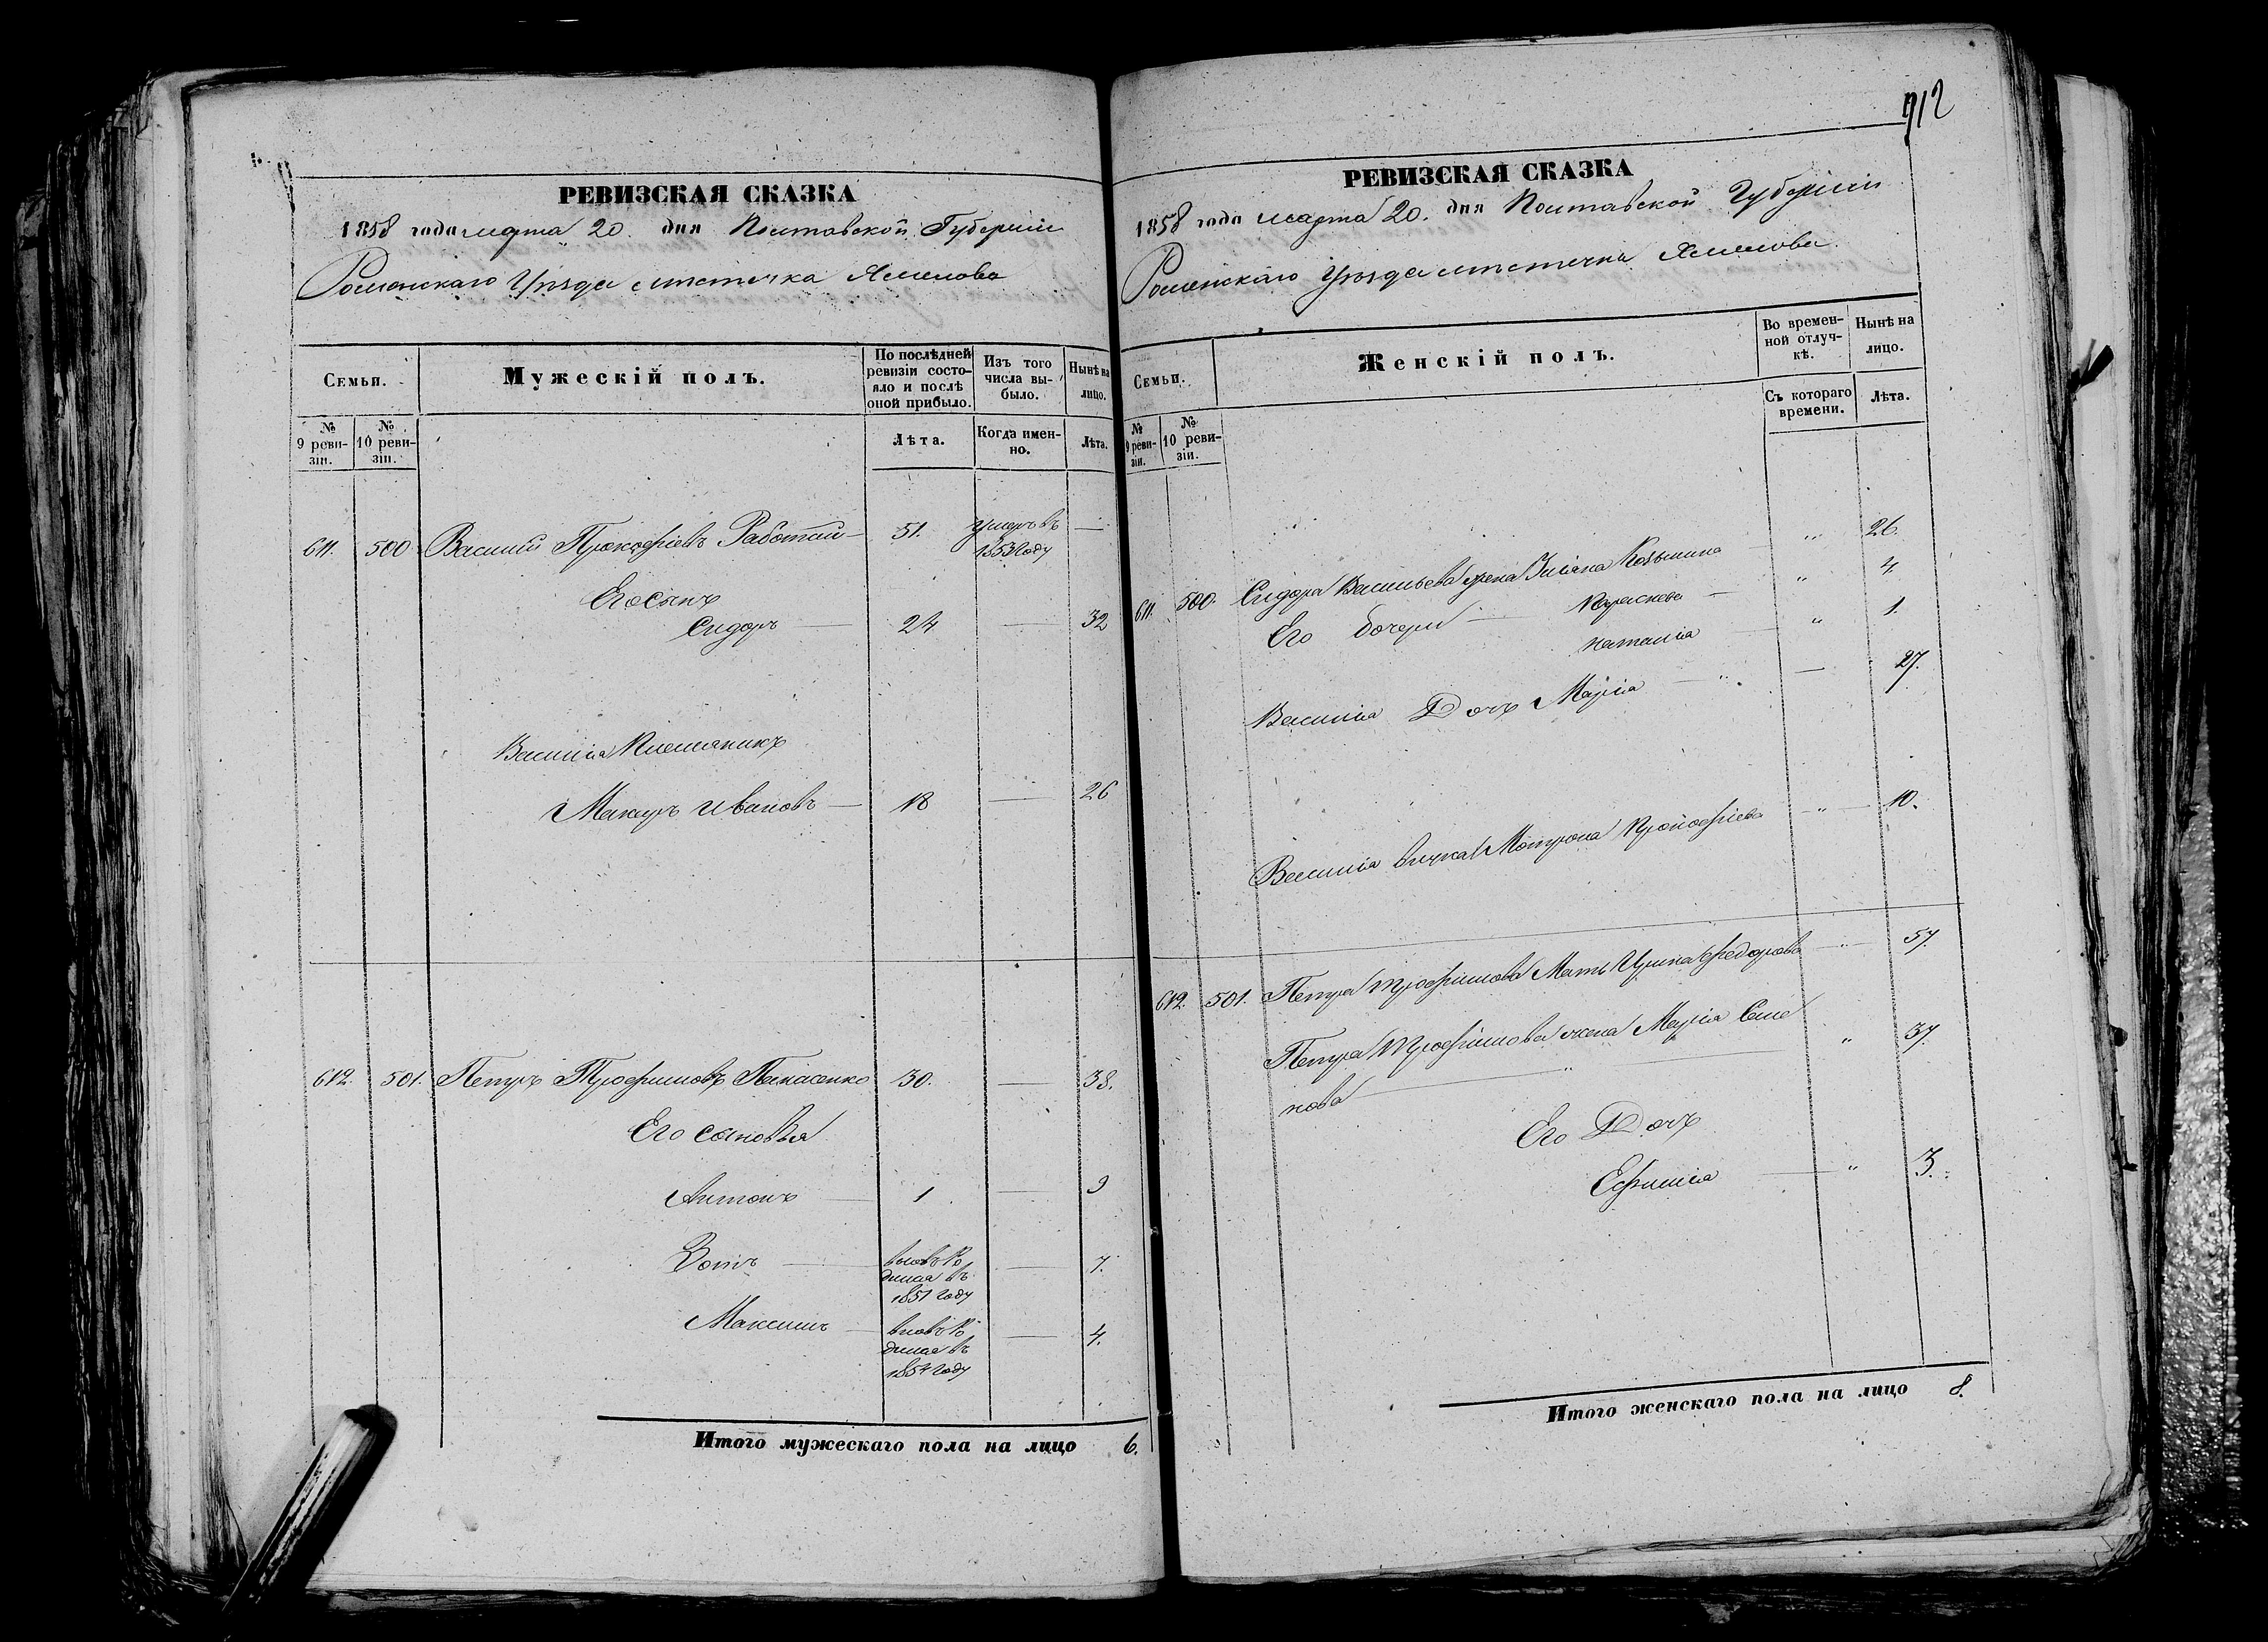 РЕВИЗСКАЯ СКАЗКА
1858 года марта 20. дня Полтавской Губерніи
Роменскаго Уѣзда мѣстечка Смѣлова
Семьи. Мужескій полъ. По послѣдней ревизіи состояло и послѣ оной прибыло. Изъ того числа выбыло. Нынѣ на лицо.
№ 9 ревизіи. № 10 ревизіи. Лѣта. Когда именно. Лѣта.
611. 500 Василій Прокофіевъ Работай 51. Умеръ въ 1853 году —
Его сынъ
Сидоръ — 24 — 32
Василія Племяникъ
Макаръ Ивановъ — 18 — 26
612. 501. Петръ Трофимовъ Панасенко 30. — 38.
Его сыновья
Антонъ — 1 — 9
Зотъ — вновь Ро
дился въ — 7.
1851 году
Максимъ — вновь Ро
дился въ — 4.
1854 году
Итого мужескаго пола на лицо 6.
912
РЕВИЗСКАЯ СКАЗКА
1858 года марта 20. дня Полтавской Губерніи
Роменскаго Уѣзда мѣстечка Смѣлова
Семьи. Женскій полъ. Во временной отлучкѣ. Нынѣ на лицо.
№ 9 ревизіи. № 10 ревизіи. Съ котораго времени. Лѣта.
611. 500. Сидора Васильева жена Уліяна Козьмина „ 26.
Его дочери — Параскева — „ 4.
Наталія — „ 1.
Василія Дочь Марія — „ — 27.
Василія внучка Мотрона Прокофіева — „ — 10.
612. 501. Петра Трофимова Мать Ирина Федорова — „ — 57.
Петра Трофимова жена Марія Семе
нова — „ — „ 37.
Его Дочь
Ефимія — „ 3.
Итого женскаго пола на лицо 8.